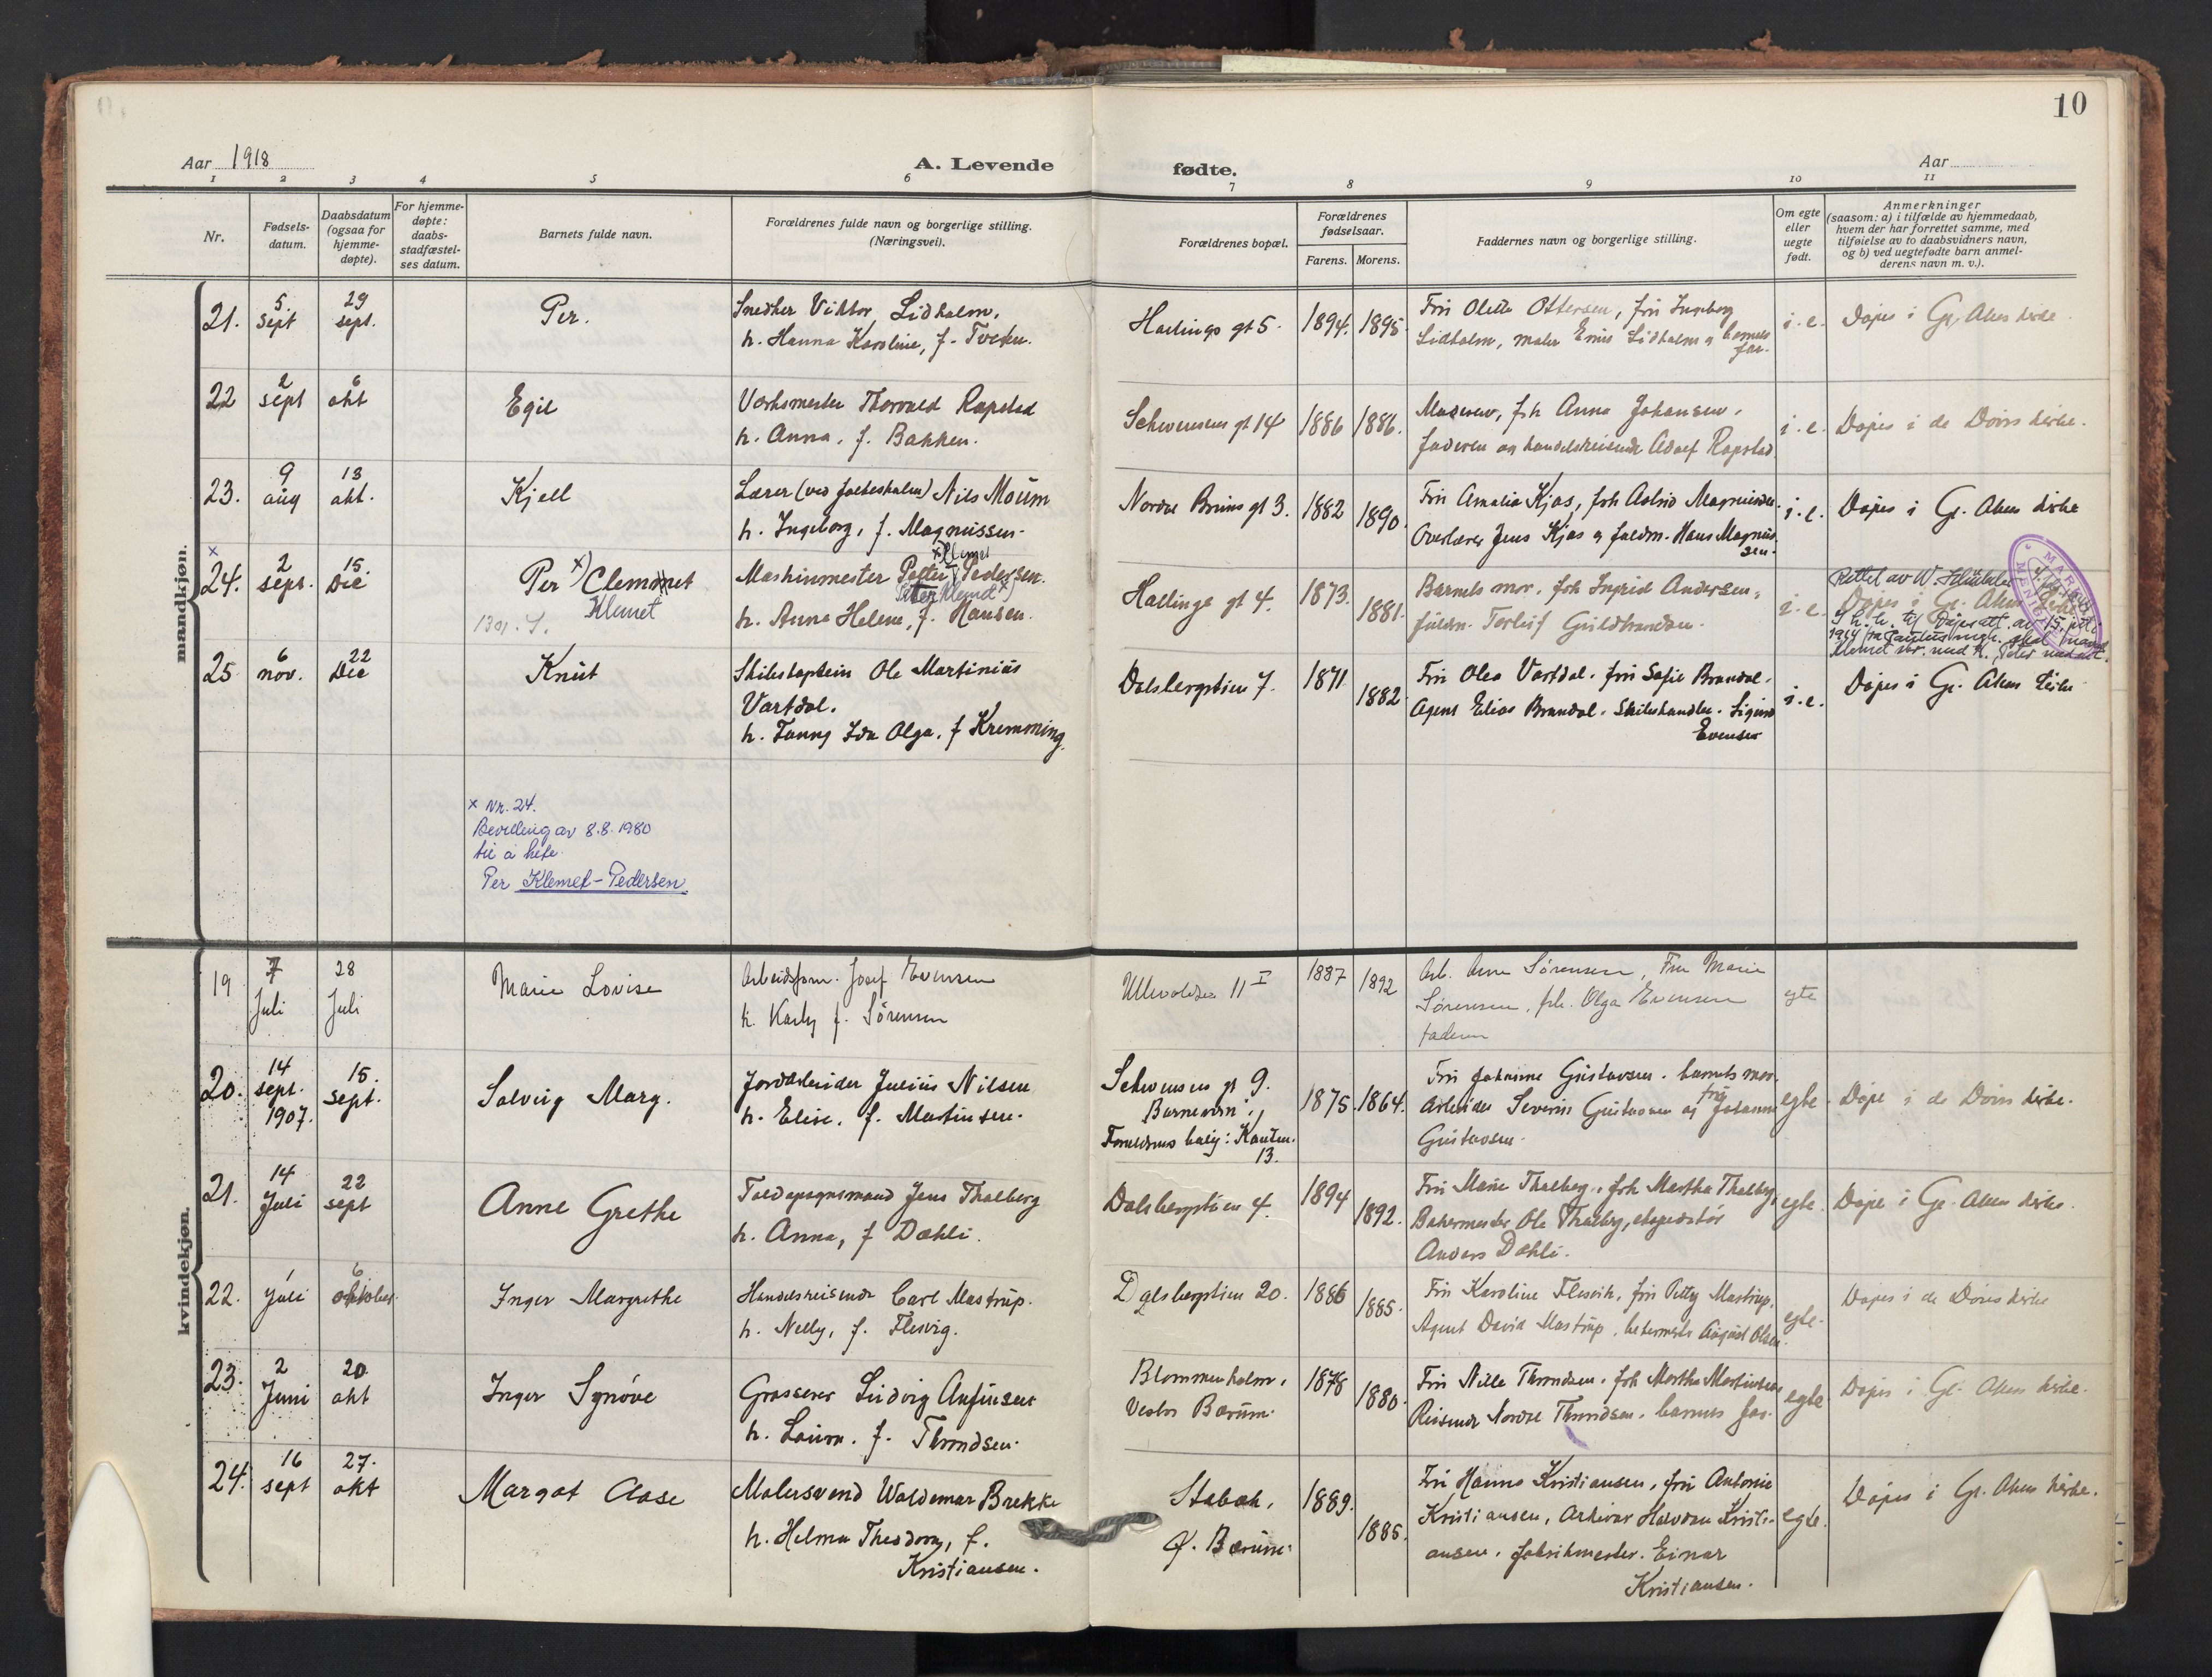 10
Aar 1918
A. Levende
fødte.
Aar
1 2 3 4 5 6 7 8 9 10 11
Nr.
Fødsels-
datum.
Daabsdatum
(ogsaa for
hjemme-
døpte).
For hjemme-
døpte:
daabs-
stadfæstel-
ses datum.
Barnets fulde navn.
Forældrenes fulde navn og borgerlige stilling.
(Næringsvei).
Forældrenes bopæl.
Forældrenes
fødselsaar.
Farens. Morens.
Faddernes navn og borgerlige stilling.
Om egte
eller
uegte
født.
Anmerkninger
(saasom: a) i tilfælde av hjemmedaab,
hvem der har forrettet samme, med
tilføielse av to daabsvidners navn,
og b) ved uegtefødte barn anmel-
derens navn m. v.).
mandkjøn.
21.
5.
sept
29
sept.
Per.
Snedker Viktor Lidholm.
h. Hanna Karoline, f.
Hallings gt 5.
1894. 1895.
Fru Olette Ottersen, fru Ingeborg
Lidholm, maler Lidholm og barnets
far.
i. e.
Døpt i Gl. Akers kirke
22
2
sept
6
okt
Egil
Verksmester Thorvald Rapstad
h. Anna, f. Bakken.
Schwensens gt 14
1886 1886.
Moderen, frk Anna Johansen,
faderen og handelsreisende Adolf Rapstad
i. e.
Døpt i de Døves kirke.
23.
9
aug
13
okt.
Kjell
Lærer (ved folkeskolen) Nils Moum
h. Ingeborg, f. Magnussen.
Nordre Bruns gt 3.
1882 1890.
Fru Amalia Kjos, frk Astrid Magnussen.
Overlærer Jens Kjos og fuldm. Hans Magnus-
sen.
i. e.
Døpt i Gl. Akers kirke
x
24.
2
sept.
15.
Dec
Per x) Clemmet
Klemet
x) Klemet
Maskinmester Petter Pedersen.
Peter Klemet x)
h. Anna Helene, f. Hansen.
Hallings gt 4.
1873. 1881.
Barnets mor, frk Ingrid Andersen,
fuldm. Torleif Guldbrandsen.
i. e.
Rettet av W.
Døpt i Gl. Akers kirke
25
6
nov.
22
Dec
Knut
Skibskaptein Ole Martinius
Vartdal.
h. Fanny Ida Olga, f Kremming.
Dalsbergstien 7.
1871. 1882.
Fru Olea Vartdal, fru Sofie Brandal.
Agent Elias Brandal. Skibshandler. Sigurd
Evensen
i. e.
Døpt i Gl. Akers kirke
x Nr. 24.
Bevilling av 8.8.1980
til å hete
Per Klemet-Pedersen
kvindekjøn.
19
7
Juli
28
Juli
Marie Lovise
Arbeidsform. Josef Evensen
h. Karly f. Sørensen
Ullevoldsv 11 I
1887 1892
Arb. Arne Sørensen, Fru Marie
Sørensen, frk. Olga Evensen
faderen
egte
20.
14
sept.
1907.
15.
sept.
Solveig Marg.
Jordarbeider Julius Nilsen
h. Elise, f. Martinsen.
Schwensens gt 9.
13.
1875. 1864.
Fru Johanne Gustavsen. barnets mor.
Arbeider Severin Gustavsen og fru Johanne
Gustavsen.
egte.
Døpt i de Døves kirke.
21.
14
Juli
22
sept
Anne Grethe
Toldopsynsmand Jens Thalberg
h. Anna, f Dæhli.
Dalsbergstien 4.
1894 1892.
Fru Marie Thalberg, frk Martha Thalberg,
Bakermester Ole Thalberg, ekspeditør
Anders Dæhli.
egte.
Døpt i Gl. Akers kirke.
22.
1
juli
6
oktober.
Inger Margrethe
Handelsreisende Carl Mastrup.
h. Nelly, f. Flesvig.
Dalsbergstien 20.
1886 1885.
Fru Karoline Flesvik, fru Petty Mastrup,
Agent David Mastrup, August Olsen.
egte.
Døpt i de Døves kirke
23.
2
Juni
20
okt
Inger Synøve
Grosserer Ludvig Anfinsen
h. Laura, f. Throndsen.
Blommenholm,
Vestre Bærum.
1878 1880.
Fru Nille Throndsen, frk Martha Martinsen
Reisende Nordre Throndsen, barnets far.
egte
Døpt i Gl. Akers kirke.
24.
16
sept
27.
okt
Margot Aase
Malersvend Waldemar Brekke
h. Helma Theodora, f.
Kristiansen.
Stabæk,
Ø. Bærum.
1889. 1885.
Fru Hanna Kristiansen, fru Antonie
Kristiansen, Arkivar Halvdan Kristi-
ansen, fabrikmester. Einar
Kristiansen.
egte.
Døpt i Gl. Akers kirke.